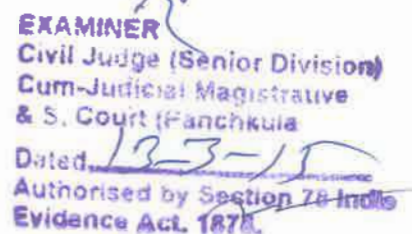 EXAMINER
Civil Judge (Senior Division)
Cum-Judicial Magistrative
& S. Court (Panchkula
Dated 13-3-15
Authorised by Section 78 Indle
Evidence Act. 1878.